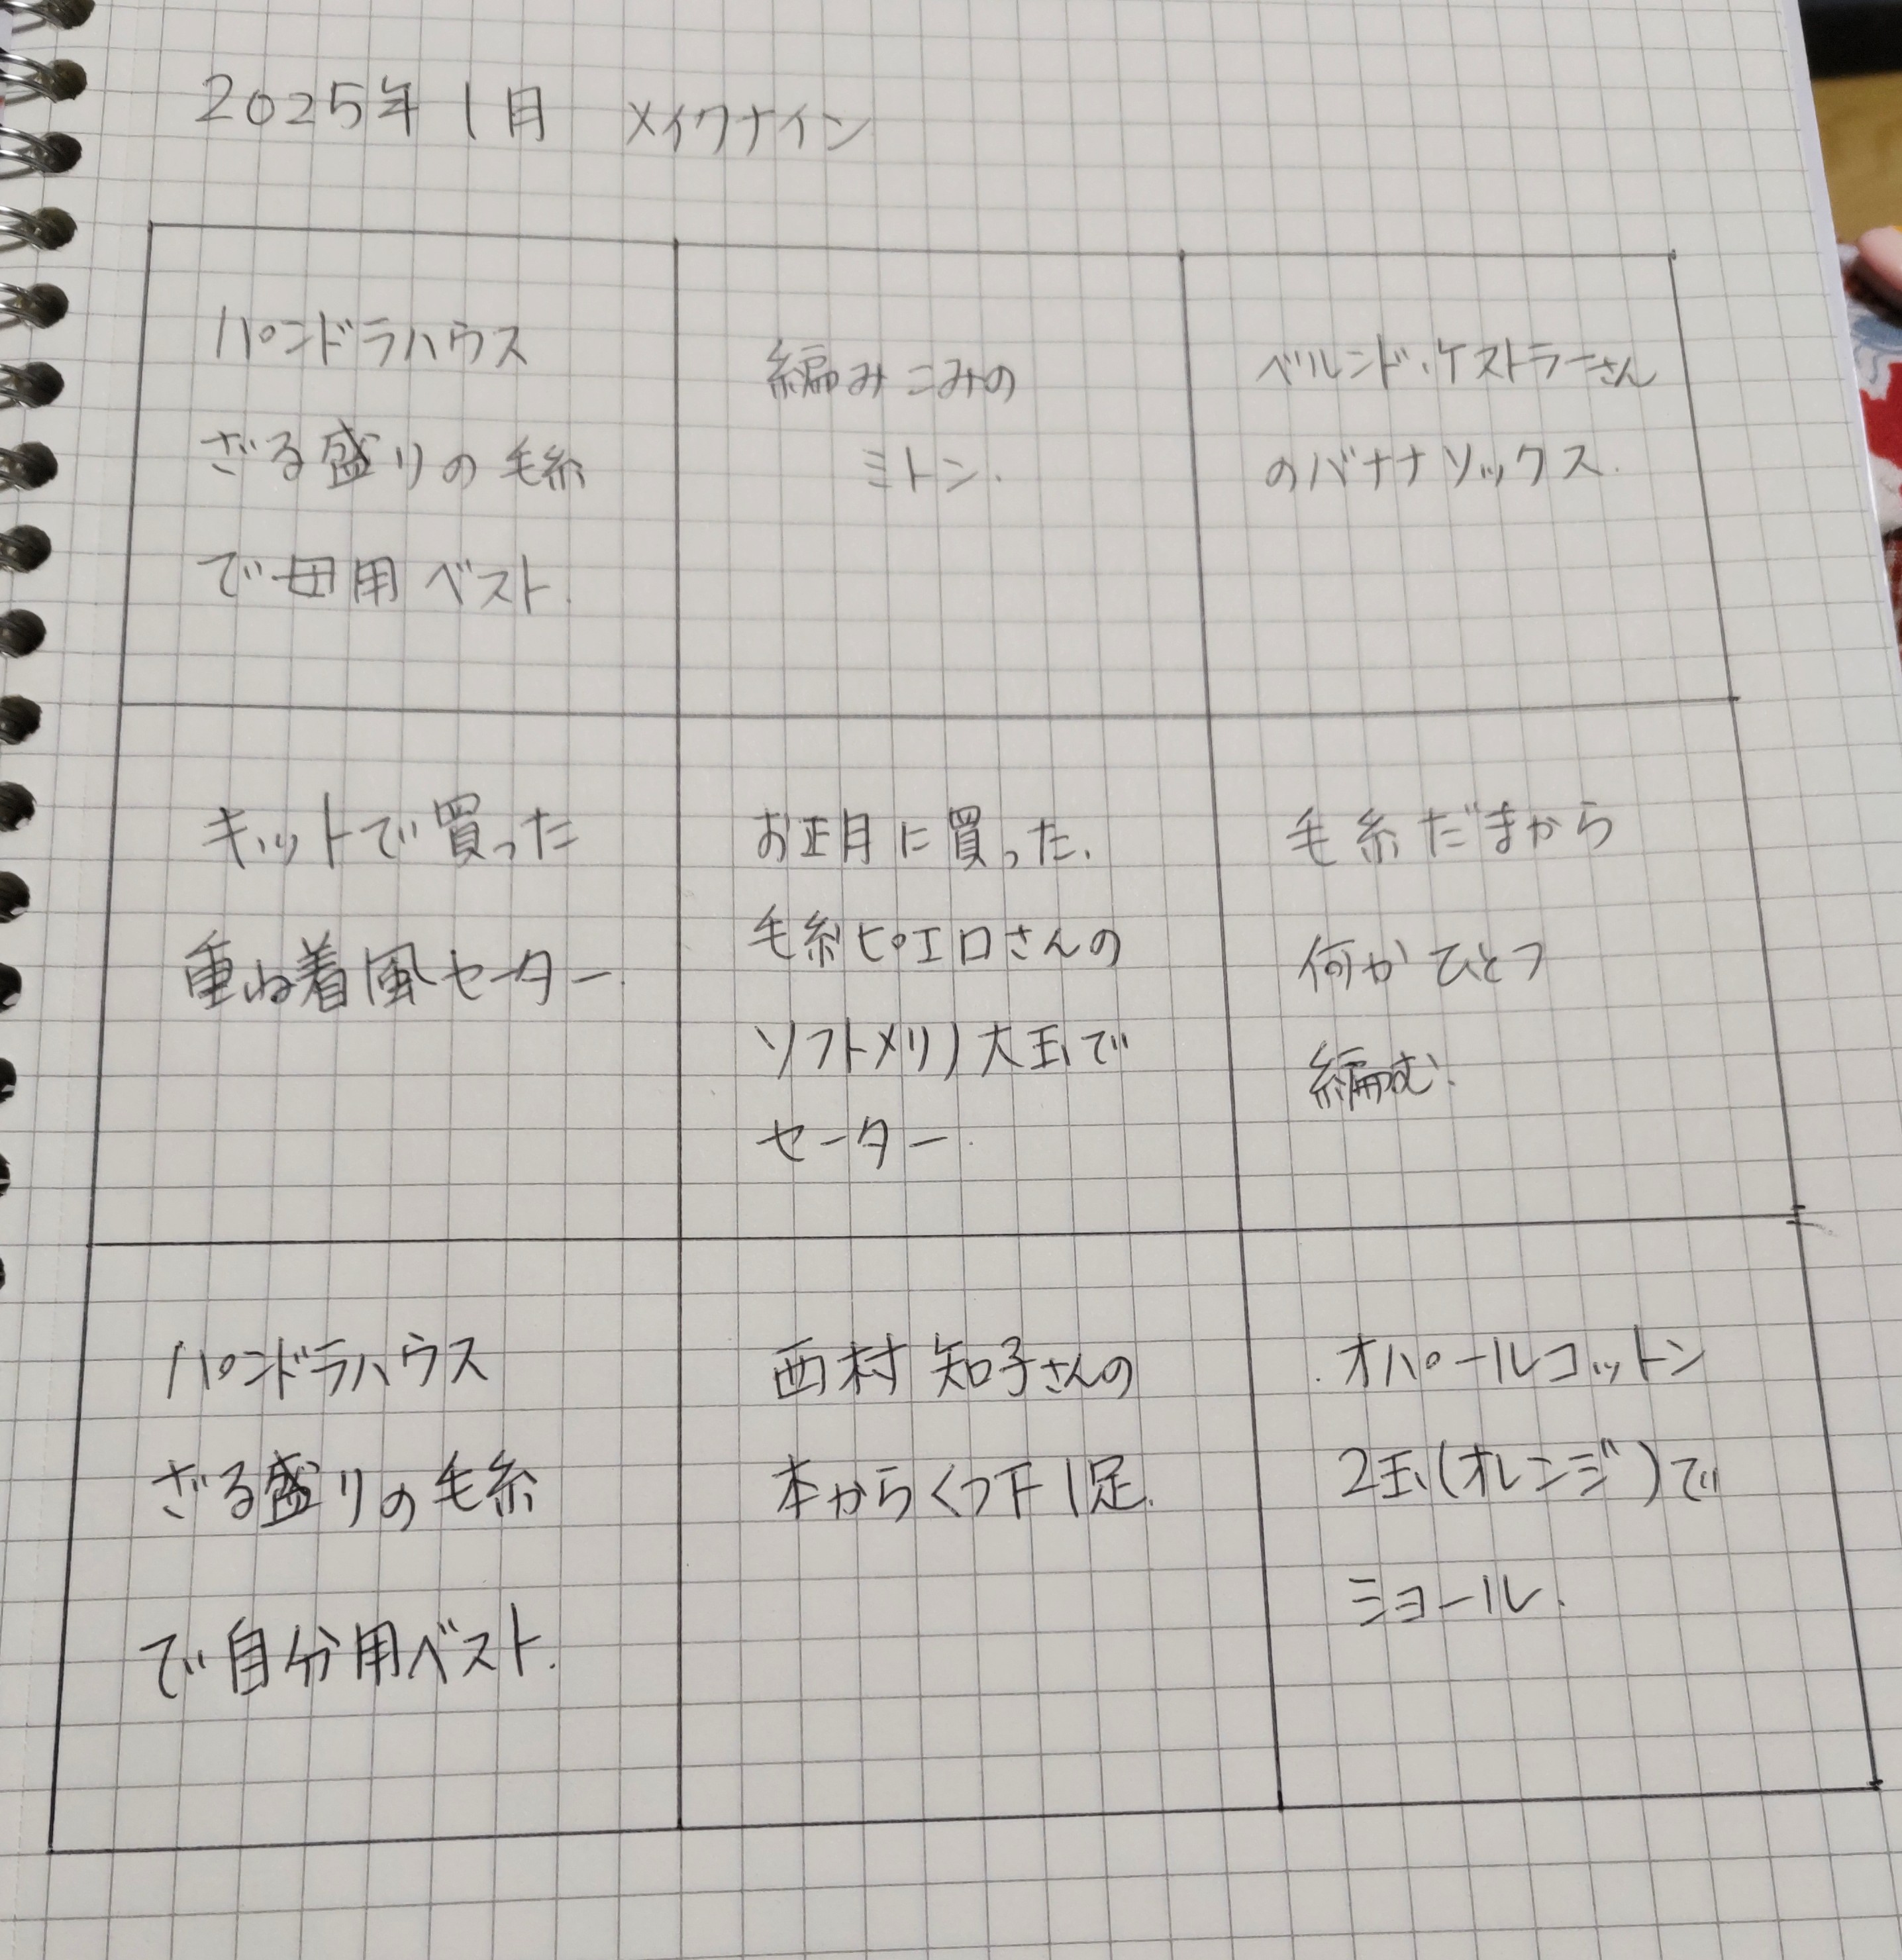 2025年1月 メイクナイン
パンドラハウス
ざる盛りの毛糸
で母用ベスト.
編みこみの
ミトン.
ベルンド・ケストラーさん
のバナナソックス.
キットで買った
重ね着風セーター.
お正月に買った、
毛糸ピエロさんの
ソフトメリノ大玉で
セーター.
毛糸だまから
何かひとつ
編む.
パンドラハウス
ざる盛りの毛糸
で自分用ベスト.
西村知子さんの
本からくつ下1足.
オパールコットン
2玉(オレンジ)で
ショール.